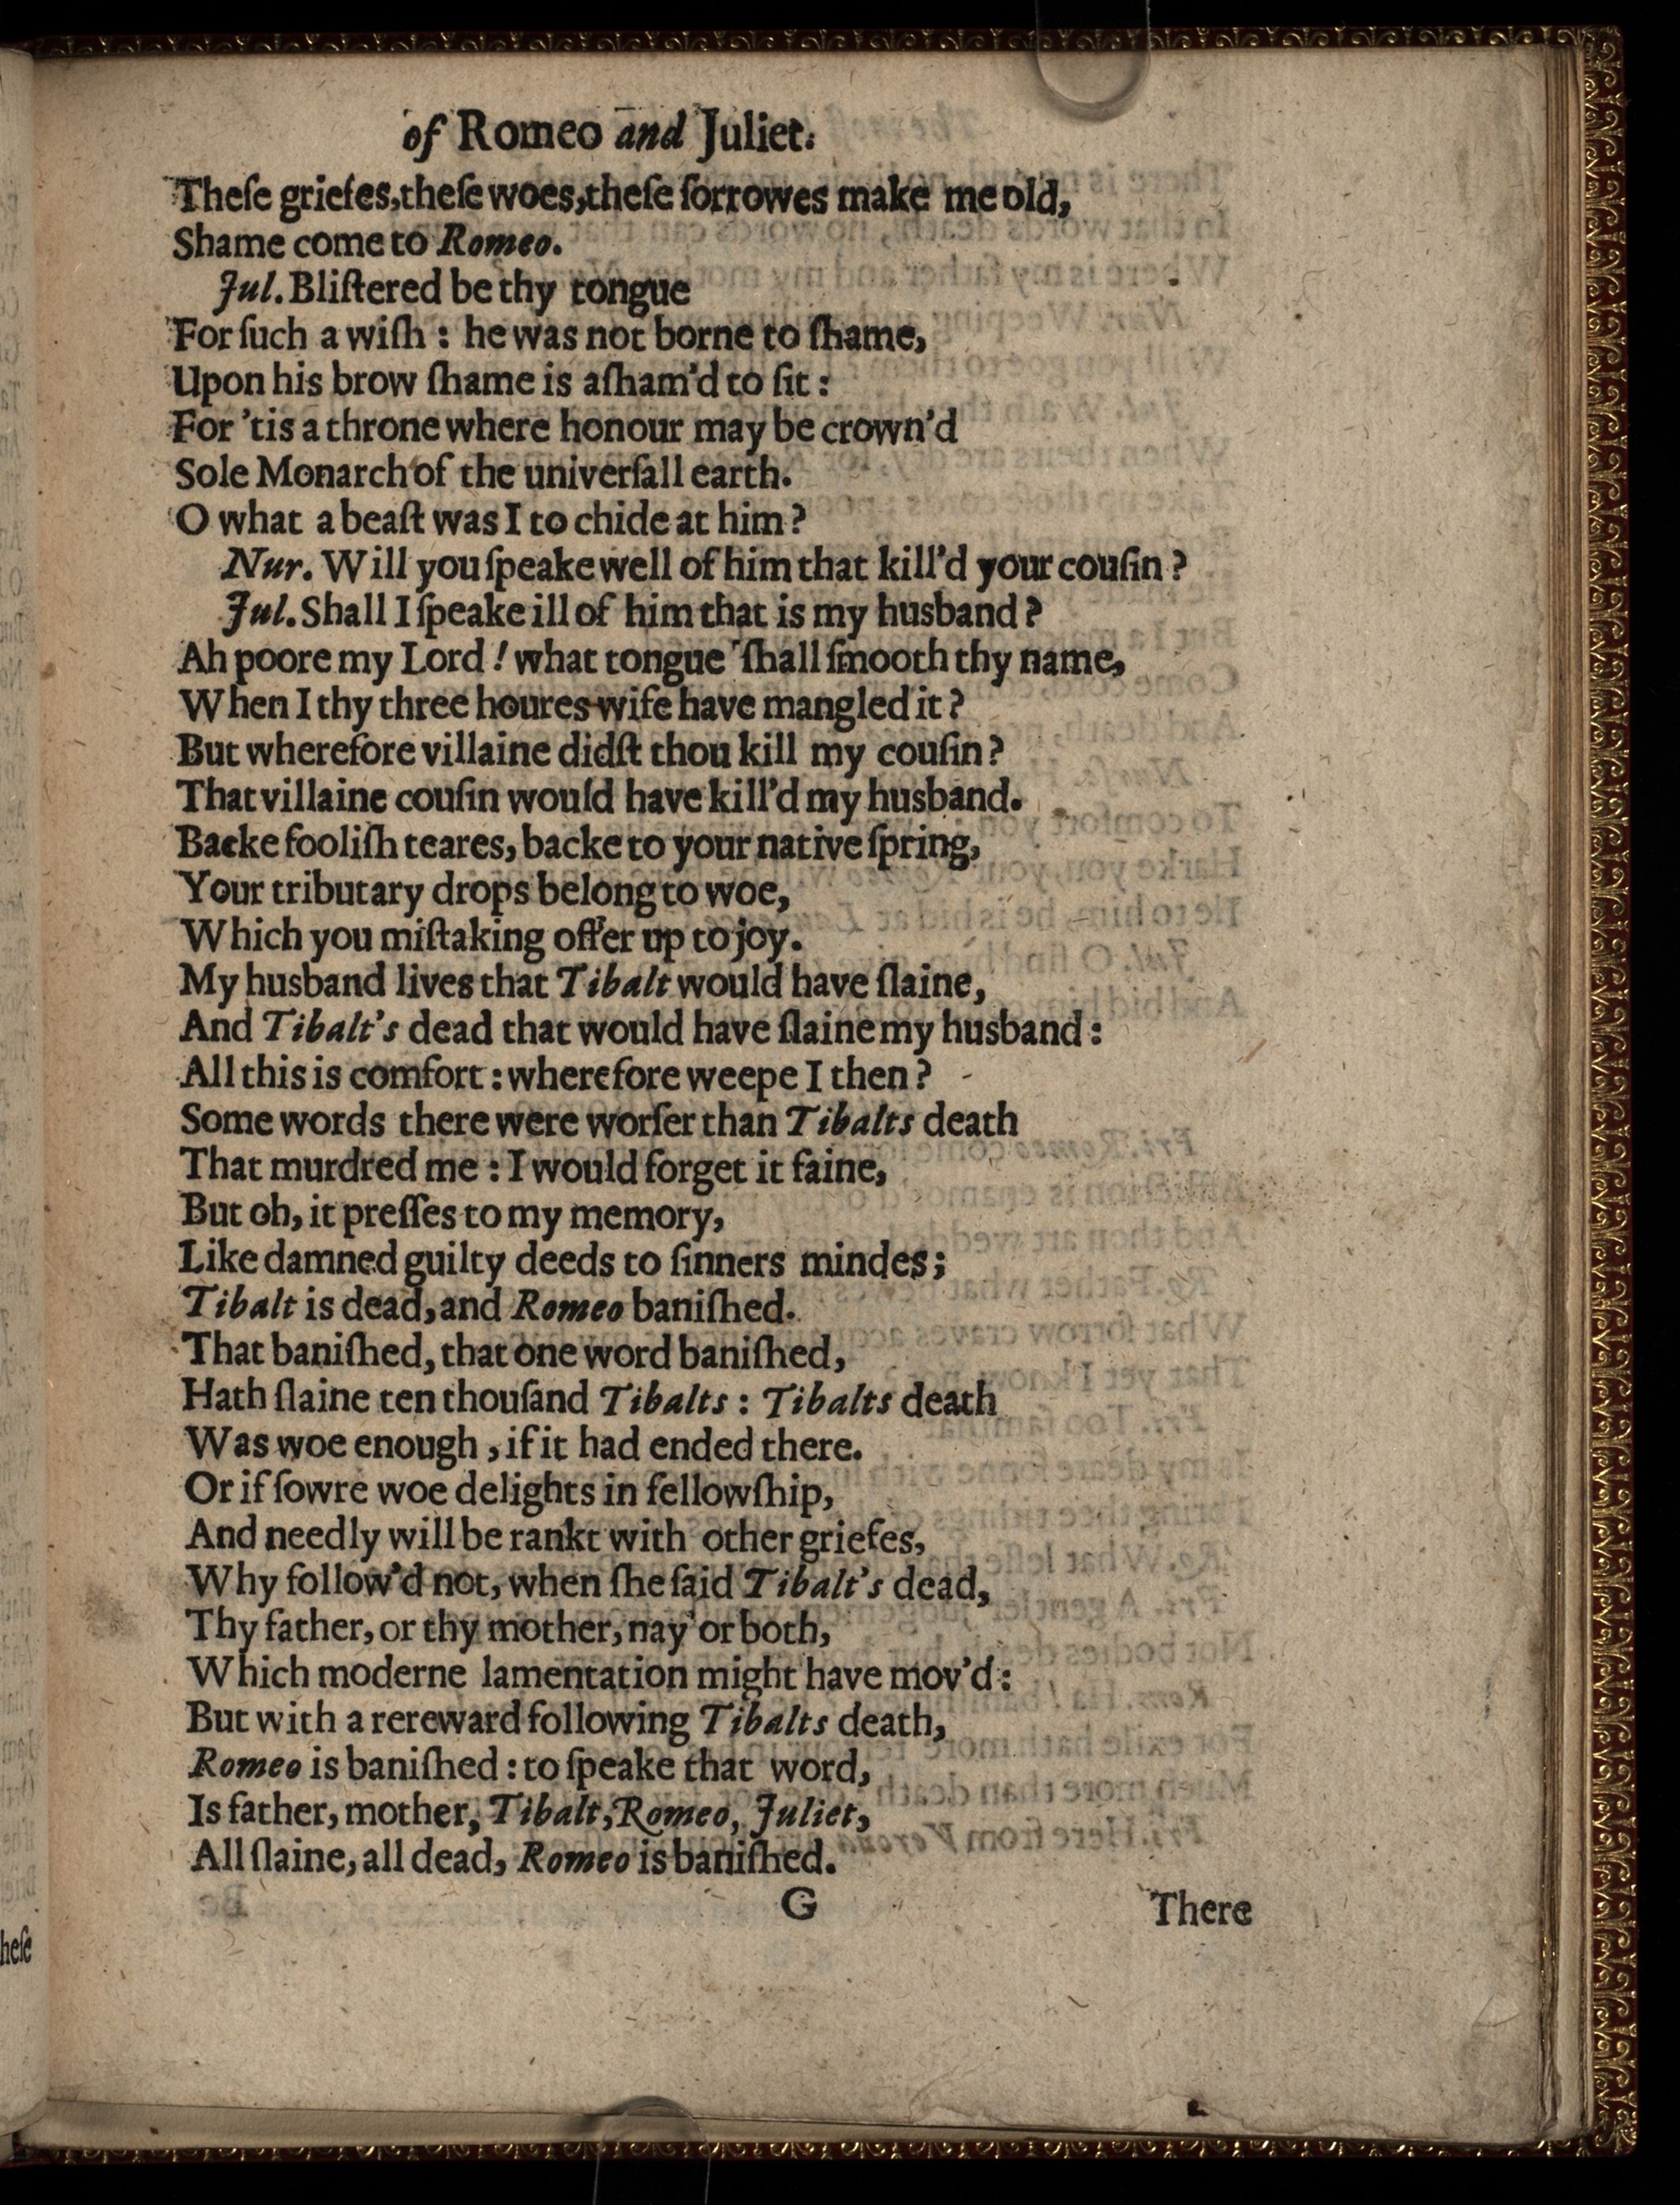 of Romeo and Juliet.
Theſe griefes,theſe woes,theſe ſorrowes make me old,
Shame come to Romeo.
Jul. Bliſtered be thy tongue
For ſuch a wiſh : he was not borne to ſhame,
Upon his brow ſhame is aſham'd to ſit :
For 'tis a throne where honour may be crown'd
Sole Monarch of the univerſall earth.
O what a beaſt was I to chide at him ?
Nur. Will you ſpeake well of him that kill'd your couſin ?
Jul. Shall I ſpeake ill of him that is my husband ?
Ah poore my Lord ! what tongue ſhall ſmooth thy name,
When I thy three houres-wife have mangled it ?
But wherefore villaine didſt thou kill my couſin ?
That villaine couſin would have kill'd my husband.
Backe fooliſh teares, backe to your native ſpring,
Your tributary drops belong to woe,
Which you miſtaking offer up to joy.
My husband lives that Tibalt would have ſlaine,
And Tibalt's dead that would have ſlaine my husband :
All this is comfort : wherefore weepe I then ?
Some words there were worſer than Tibalts death
That murdred me : I would forget it faine,
But oh, it preſſes to my memory,
Like damned guilty deeds to ſinners mindes;
Tibalt is dead, and Romeo baniſhed.
That baniſhed, that one word baniſhed,
Hath ſlaine ten thouſand Tibalts : Tibalts death
Was woe enough , if it had ended there.
Or if ſowre woe delights in fellowſhip,
And needly will be rankt with other griefes,
Why follow'd not, when ſhe ſaid Tibalt's dead,
Thy father, or thy mother, nay or both,
Which moderne lamentation might have mov'd :
But with a rereward following Tibalts death,
Romeo is baniſhed : to ſpeake that word,
Is father, mother, Tibalt, Romeo, Juliet,
All ſlaine, all dead, Romeo is baniſhed.
G There
heſe